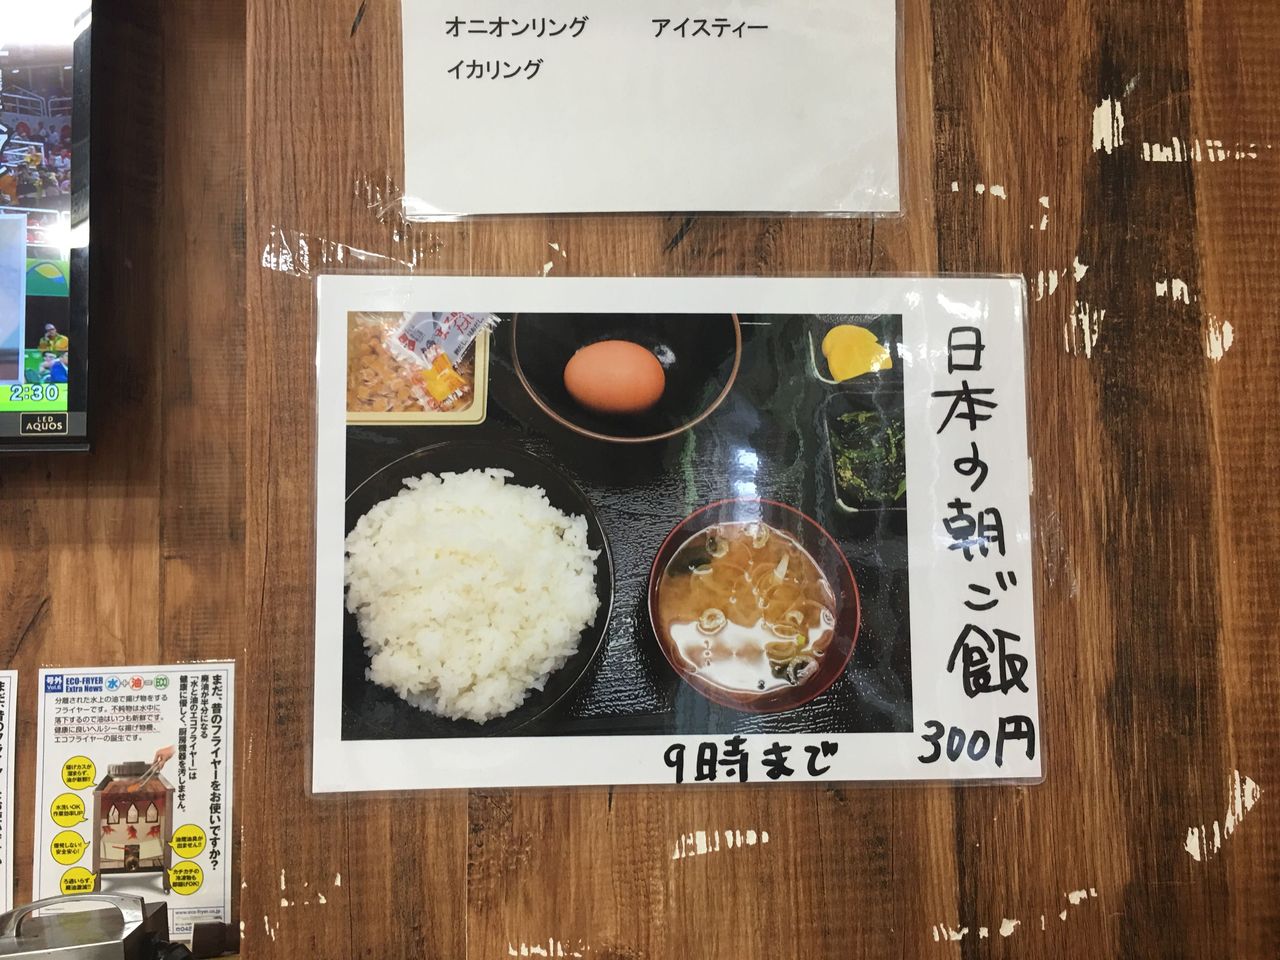 オニオンリング　アイスティー
イカリング
日本の朝ご飯
300円
9時まで
2:30
LED
AQUOS
号外
Vol.6
ECO-FRYER
Extra News
水+油=ECO
分離された水上の油で揚げ物をする
フライヤーです。不純物は水中に
落下するので油はいつも新鮮です。
健康に良いヘルシーな揚げ物機、
エコフライヤーの誕生です。
まだ、昔のフライヤーをお使いですか?
廃油が半分になる
「水と油のエコフライヤー」は
健康に優しく、厨房機器を汚しません。
揚げカスが
溜まらず、
油が新鮮!
水洗いOK
作業効率UP!
爆発しない!
安全安心!
ろ過いらず、
廃油激減!!
油煙油臭が
出ません!!
カチカチの
冷凍物も
即揚げOK!
www.eco-fryer.co.jp